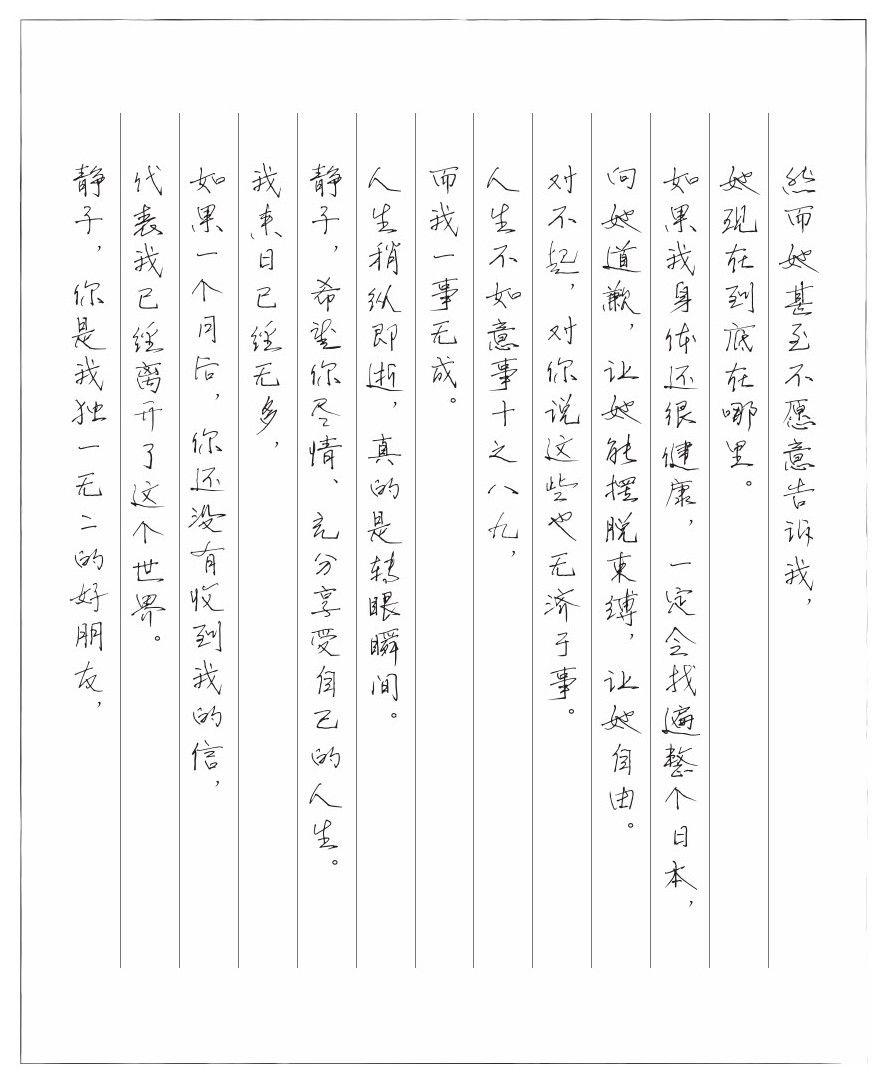 然而她甚至不愿意告诉我，
她现在到底在哪里。
如果我身体还很健康，一定会找遍整个日本，
向她道歉，让她能摆脱束缚，让她自由。
对不起，对你说这些也无济于事。
人生不如意事十之八九，
而我一事无成。
人生稍纵即逝，真的是转眼瞬间。
静子，希望你尽情、充分享受自己的人生。
我来日已经无多，
如果一个月后，你还没有收到我的信，
代表我已经离开了这个世界。
静子，你是我独一无二的好朋友，